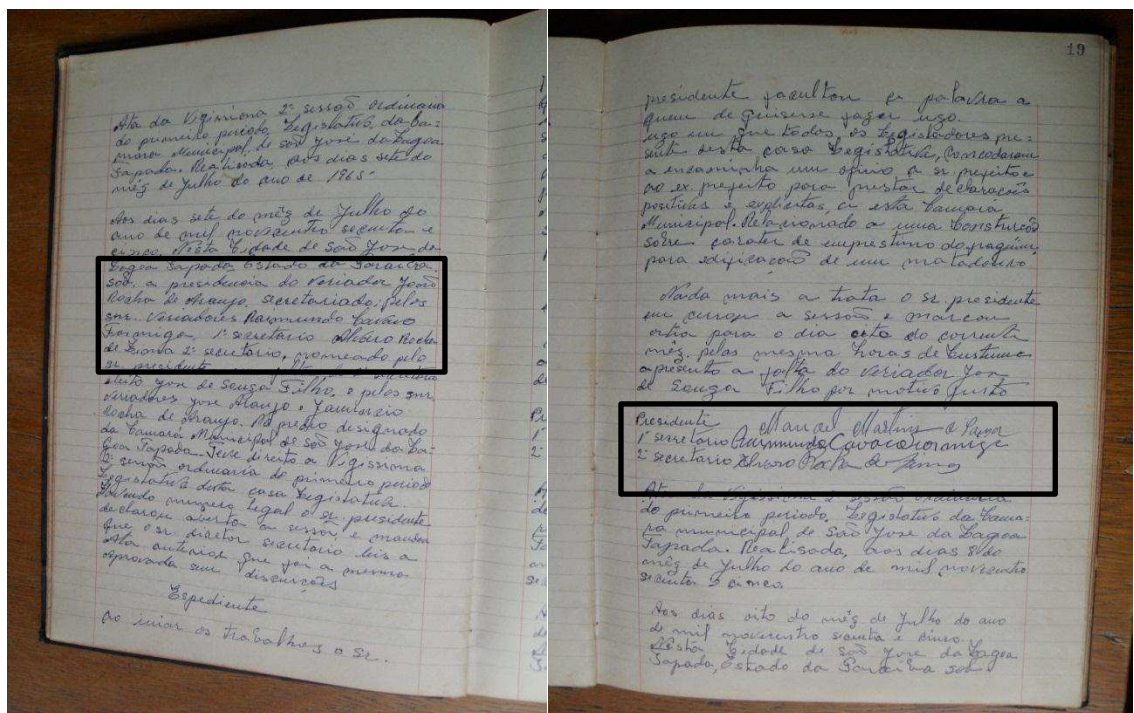 Ata da Vigissiona 2ª sessão ordinaria
do primeiro periodo, Legislativo, da Ca=
mara Municipal, de são jose da Lagoa
Tapada. Realisada, aos dias sete do
mêz de Julho do ano de 1965=
Aos dias sete do mêz de Julho do
ano de mil novicentro secenta e
cinco, Nesta Cidade de São Jose da
Lagoa Tapada Estado da Paraiba.
sob. a presidencia do Veriador João
Rocha de Araujo, secretariado, pelos
snr. Veriadores Raimundo Cavaco
Formiga, 1º secretario Alvaro Rocha
de 2º secretario, nomeado pelo
sr. precidente
jose de Souza Filho, e pelos snr
Veriadores jose Araujo e
Rocha de Araujo. No predio designado
da Camara Municipal de São jose da La=
goa Tapada. Teve direto a Vigissiona
2ª sessão ordinaria do primeiro periodo
Legislativo desta casa Legislativa
Havendo numero legal o sr. presidente
declarou aberta a sessão, e mandou
que o sr. diretor secretario leis a
Ata anterior que foi a mesma
aprovada sem discurções
Espediente
ao iniar os trabalhos o sr.
19
presidente facultou a palavra a
quem de quisesse fazer uzo
uzo em que todos, os Legisladores pre=
sente nesta casa Legislativa, Concodaram
a encaminha um oficio a sr. prefeito e
ao ex. prefeito para prestar declaraçois
positivas e explicitas, a esta Camara
Municipal. Relacionado a uma Construcão
sobre carater de emprestimo do
para edificacão de um matadouro
Nada mais a trata o sr. presidente
em cerrou a sessão e marcou
outra para o dia oito do corrente
mêz. pelas mesma horas de Custume
apresento a falta do Veriador jose
de Souza Filho por motivo justo
Presidente Manoel Martins de
1º secretario Raimundo Cavaco Formiga
2º secretario Alvaro Rocha de
Ata da Vigissiona 2 sessão ordinaria
do primeiro periodo, Legislativo da Cama=
ra municipal de São Jose da Lagoa
Tapada. Realisada, aos dias 8 do
mêz de Julho do ano de mil novicentro
secenta e cinco.
Aos dias oito do mêz de Julho do ano
de mil novecentro secenta e cinco.
Nesta Cidade de São Jose da Lagoa
Tapada, Estado da Paraiba sob.